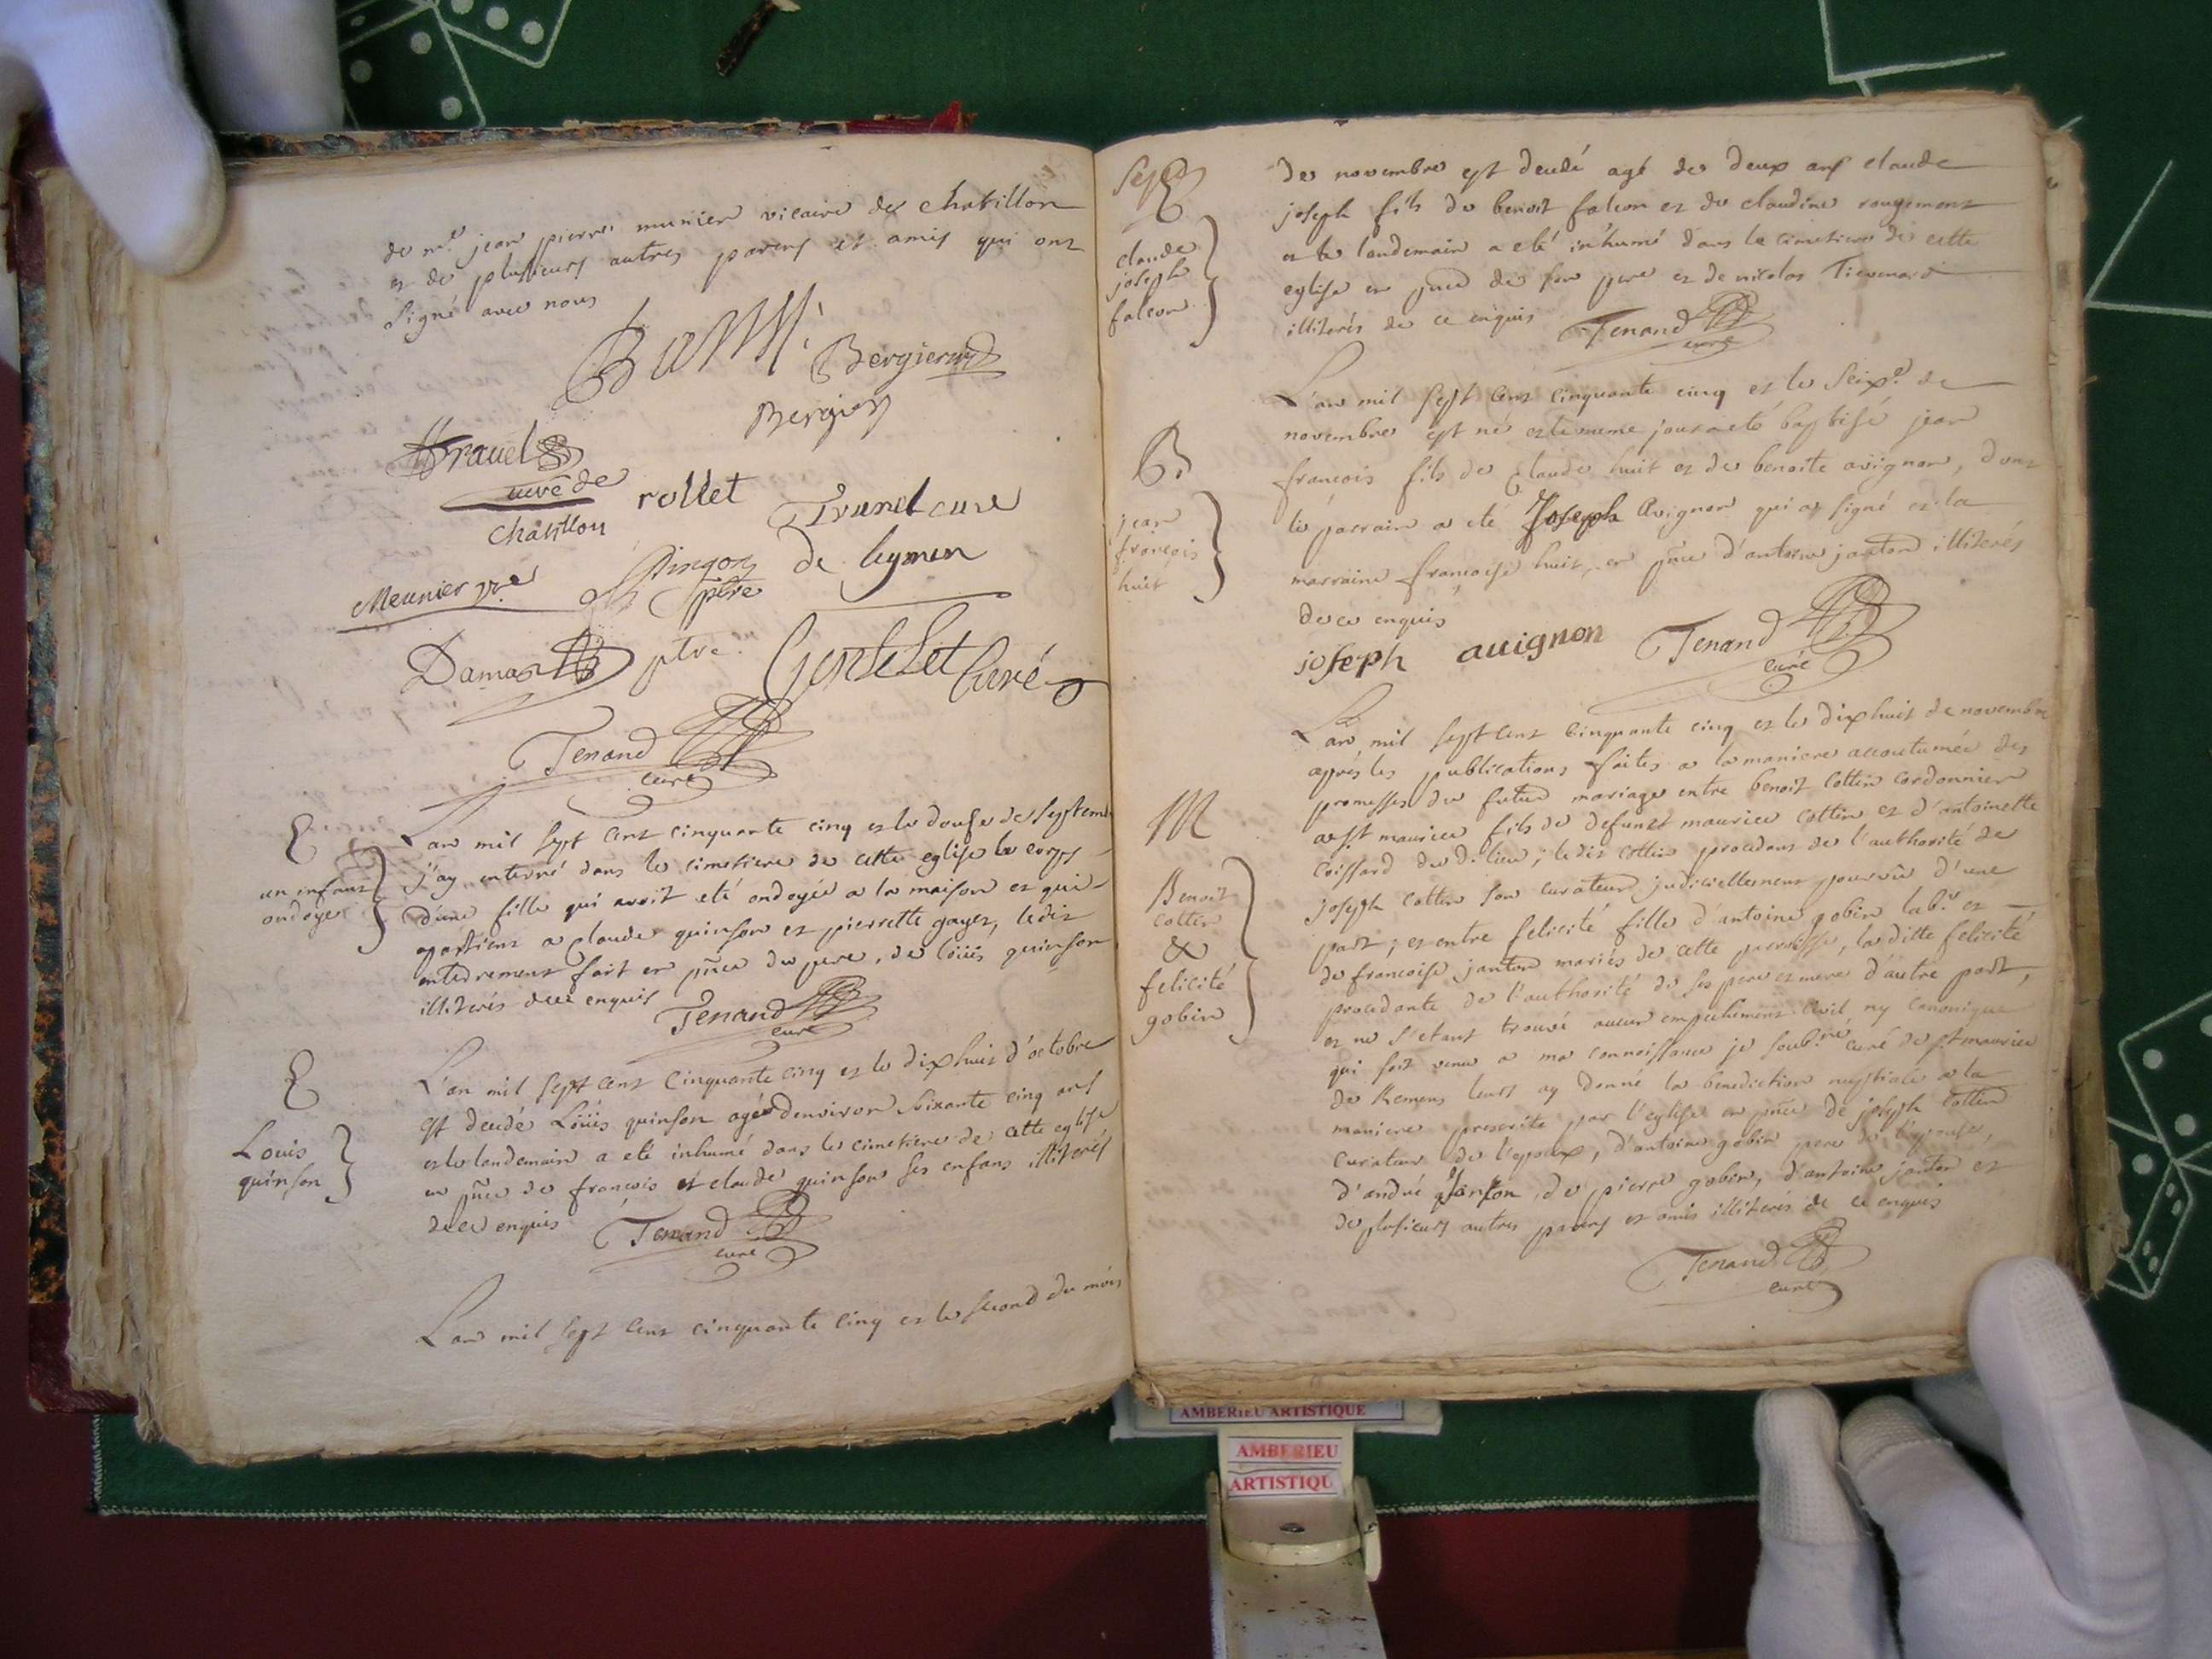 de mre jean pierre munier vicaire de chatillon
et de plusieurs autres parens et amis qui ont
signé avec nous
Bergier
Bergier
Travel
curé de
Chatillon
rollet
curé
de leymen
Meunier vre
ptre
Damas
ptre.
Gentelet Curé
Tenand
curé
E
un enfant
ondoyé
L'an mil sept cent cinquante cinq et le douse de septemb
j'ay enterré dans le cimetiere de cette eglise le corps
d'une fille qui avoit eté ondoyée a la maison et qui
apartient a claude quinson et pierrette goyet, ledit
enterrement fait en pñce du pere, de loüis quinson
illiterés de ce enquis
Tenand
curé
E
Louis
quinson
L'an mil sept cent cinquante cinq et le dixhuit d'octobre
est decedé Loüis quinson agé denviron soixante cinq ans
et le landemain a eté inhumé dans le cimetiere de cette eglise
en pñce de francois et claude quinson ses enfans illiterés
de ce enquis
Tenand
curé
L'an mil sept cent cinquante cinq et le second du mois
E
claude
joseph
falcon
de novembre est decedé agé de deux ans claude
joseph fils de benoit falcon et de claudine rougemont
et le landemain a eté inhumé dans le cimetiere de cette
eglise en pñce de son pere et de nicolas Tievenard
illiterés de ce enquis
Tenand
curé
B
jean
françois
huit
L'an mil sept cent cinquante cinq et le seize de
novembre est né et le meme jour a eté baptisé jean
francois fils de Claude huit et de benoite avignon, dont
le parrain a eté Joseph Avignon qui a signé et la
marraine françoise huit, en pñce d'antoine janton illiterés
de ce enquis
joseph auignon
Tenand
curé
M
Benoit
cottin
&
felicité
gobin
L'an mil sept cent cinquante cinq et le dixhuit de novembre
aprés les publications faites a la maniere accoutumée des
promesses de futur mariage entre benoit cottin cordonnier
a st maurice fils de defunct maurice cottin et d'antoinette
coissard du di lieu ; ledit cottin procedant de l'authorité de
joseph cottin son curateur judiciellement pourvû d'une
part ; et entre felicité fille d'antoine gobin labr. et
de francoise janton mariés de cette parroisse, la ditte felicité
procedante de l'authorité de ses pere et mere d'autre part,
et ne s'etant trouvé aucun empechement civil ny canonique
qui soit venu a ma connoissance je soub.né curé de st maurice
de Remens leurs ay donné la benediction nuptiale a la
maniere prescrite par l'eglise en pñce de joseph cottin
curateur de l'epoux, d'antoine gobin pere de l'epouse,
d'andré janton, de pierre gobin, d'antoine janton et
de plusieurs autres parens et amis illiterés de ce enquis
Tenand
curé
AMBERIEU ARTISTIQUE
AMBERIEU
ARTISTIQU